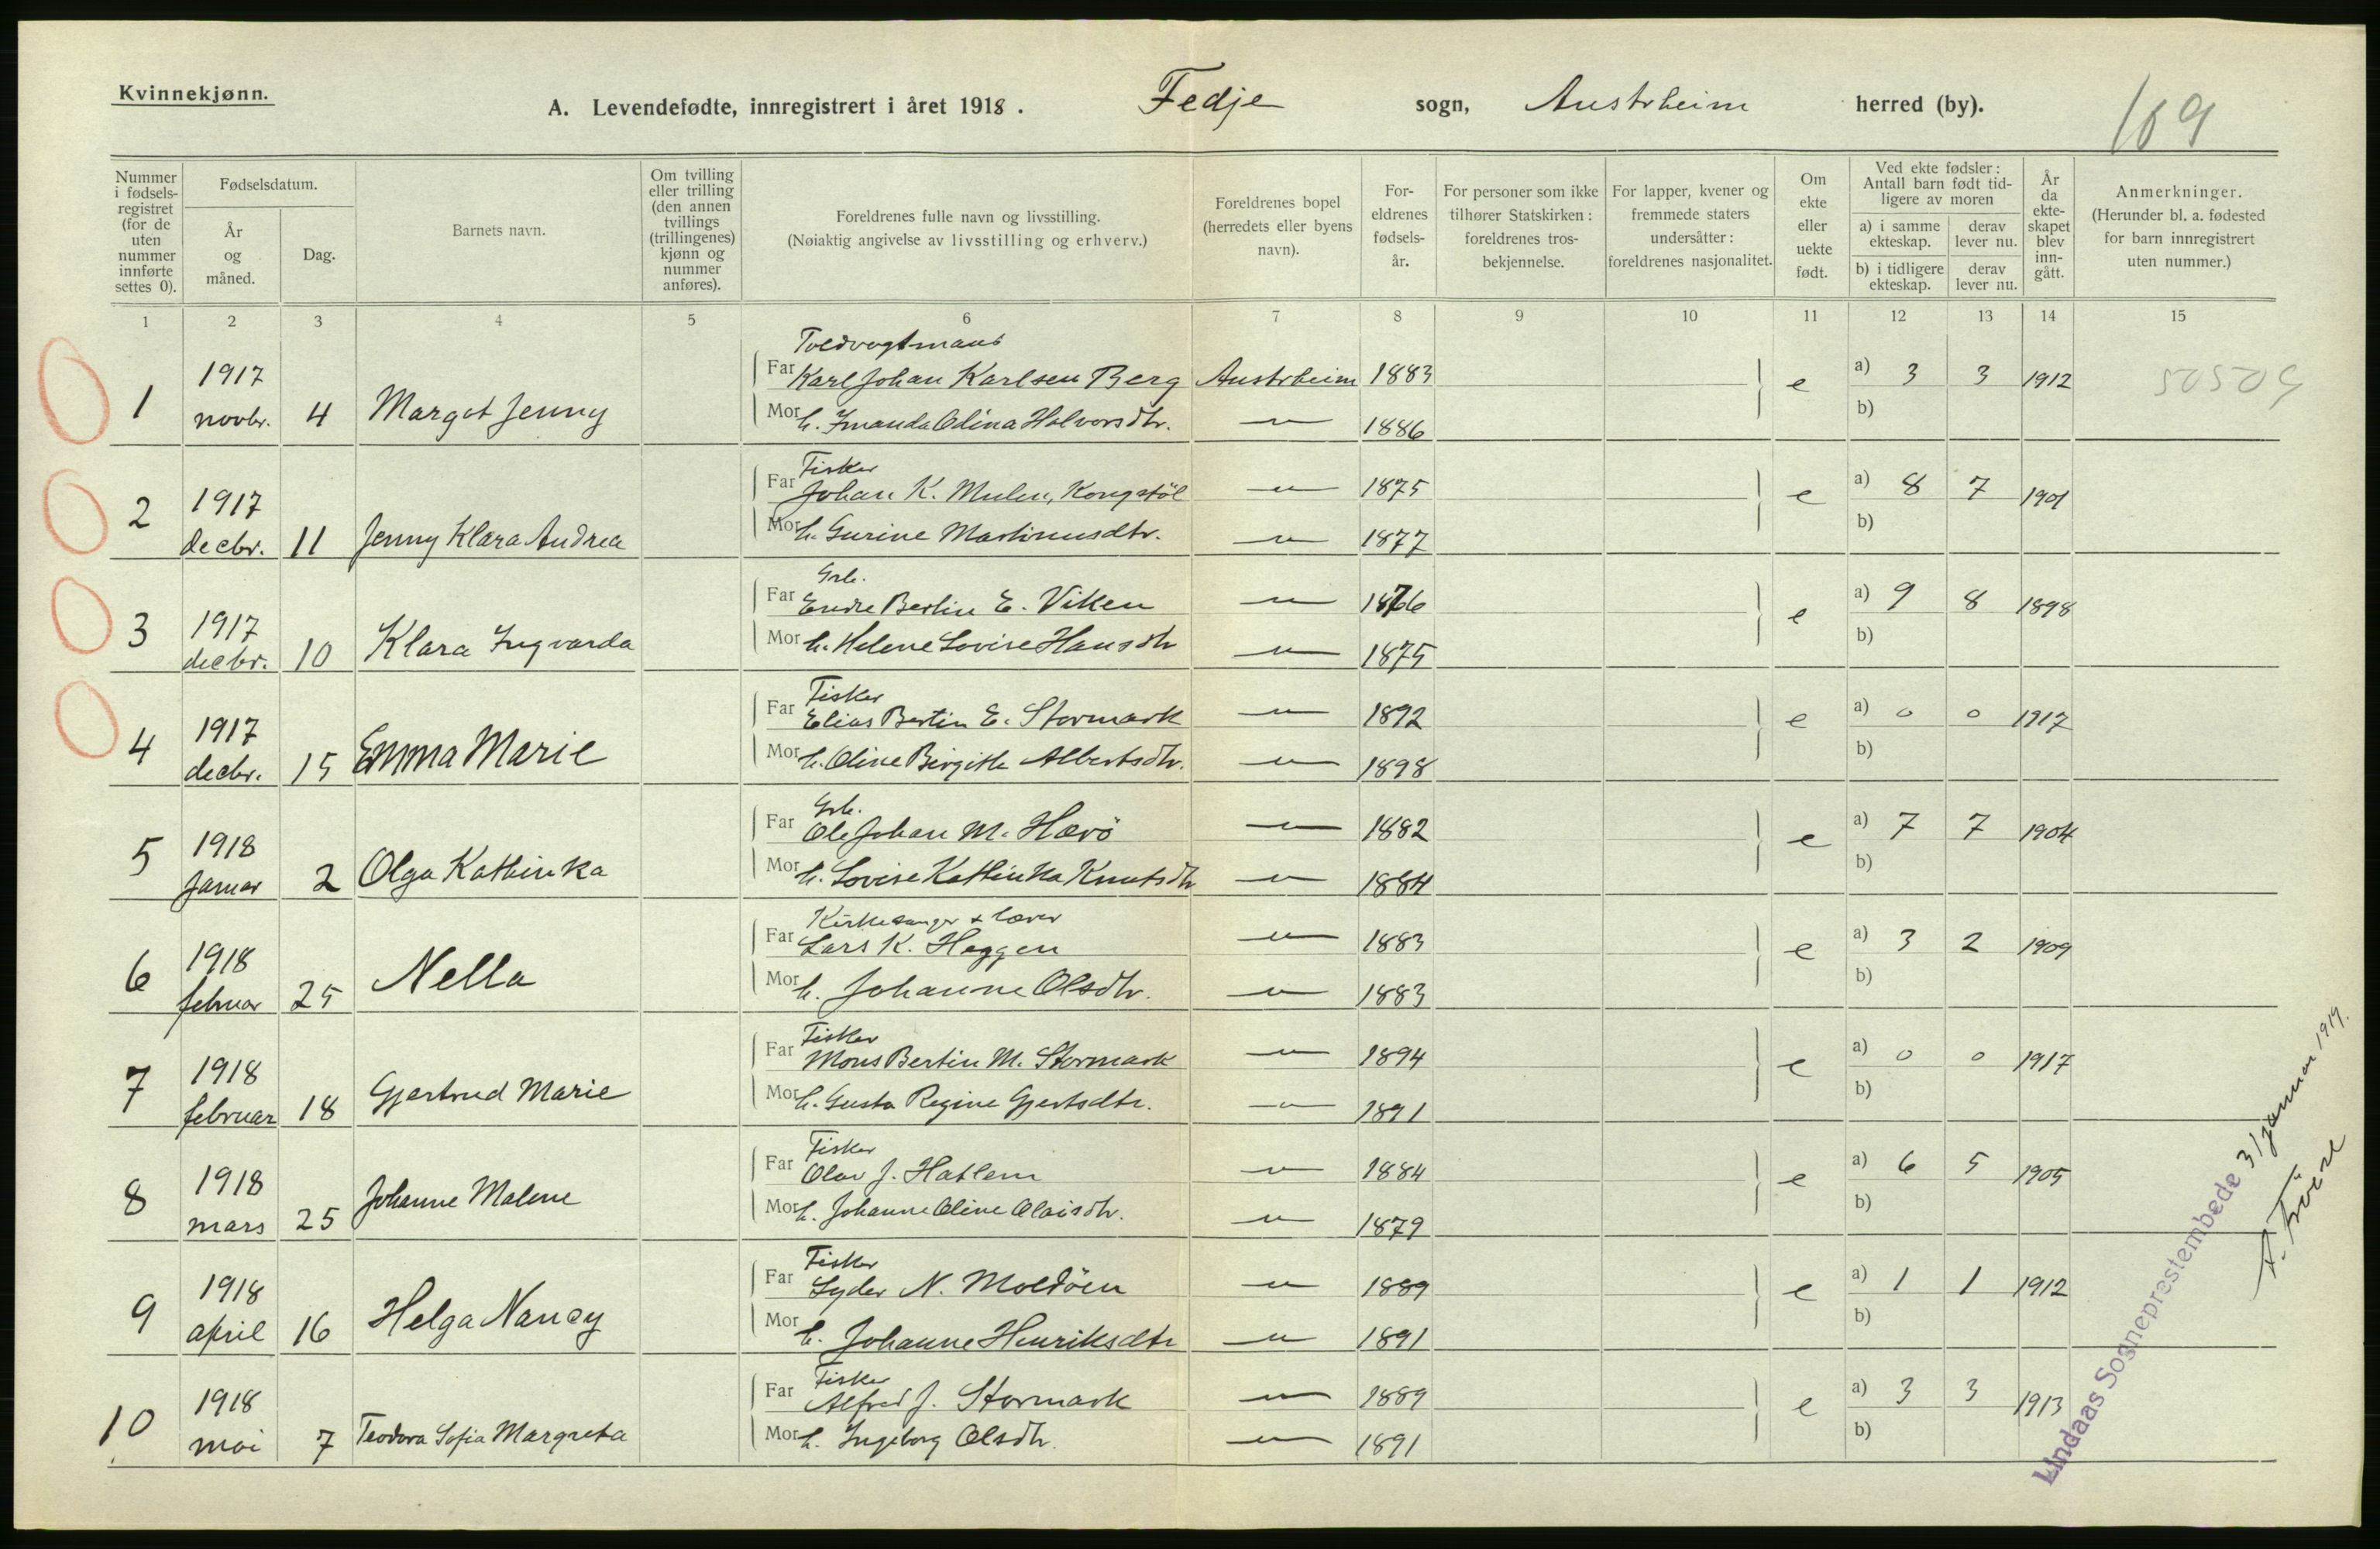 Kvinnekjønn.
A. Levendefødte, innregistrert i året 1918. Fedje sogn, Austrheim herred (by).
109
Nummer i fødsels-registret (for de uten nummer innførte settes 0).
Fødselsdatum.
År og måned.
Dag.
Barnets navn.
Om tvilling eller trilling (den annen tvillings (trillingenes) kjønn og nummer anføres).
Foreldrenes fulle navn og livsstilling.
(Nøiaktig angivelse av livsstilling og erhverv.)
Foreldrenes bopel (herredets eller byens navn).
For-eldrenes fødsels-år.
For personer som ikke tilhører Statskirken: foreldrenes tros-bekjennelse.
For lapper, kvener og fremmede staters undersåtter: foreldrenes nasjonalitet.
Om ekte eller uekte født.
Ved ekte fødsler: Antall barn født tid-ligere av moren
a) i samme ekteskap.
derav lever nu.
b) i tidligere ekteskap.
derav lever nu.
År da ekte-skapet blev inn-gått.
Anmerkninger.
(Herunder bl. a. fødested for barn innregistrert uten nummer.)
1 2 3 4 5 6 7 8 9 10 11 12 13 14 15
Toldvogtmans
1 1917 Far Karl Johan Karlsen Berg Austrheim 1883 e a) 3 3 1912
novbr. 4 Margot Jenny Mor h. Imanda Olina Halvorsdtr. — " — 1886 b)
Fisker
2 1917 Far Johan K. Mulen, Kongstöl — " — 1875 e a) 8 7 1901
decbr. 11 Jenny Klara Andrea Mor h. Gurine Martinusdtr. — " — 1877 b)
Grb.
3 1917 Far Endre Bertin E. Viken — " — 1876 e a) 9 8 1898
decbr. 10 Klara Ingvarda Mor h. Helene Lovise Hansdtr — " — 1875 b)
Fisker
4 1917 Far Elias Bertin E. Stormark — " — 1892 e a) 0 0 1917
decbr. 15 Emma Marie Mor h. Oline Birgithe Albertsdtr. — " — 1898 b)
Grb.
5 1918 Far Ole Johan M. Havö — " — 1882 e a) 7 7 1904
januar 2 Olga Kathinka Mor h. Lovise Kathinka Knutsdtr — " — 1884 b)
Kirkesanger & lærer
6 1918 Far Lars K. Heggen — " — 1883 e a) 3 2 1909
februar 25 Nella Mor h. Johanne Olsdtr. — " — 1883 b)
Fisker
7 1918 Far Mons Bertin M. Stormark — " — 1894 e a) 0 0 1917
februar 18 Gjertrud Marie Mor h. Gusta Regine Gjertsdtr. — " — 1891 b)
Fisker
8 1918 Far Olav J. Hatlem — " — 1884 e a) 6 5 1905
mars 25 Johanne Malene Mor h. Johanne Oline Olaisdtr. — " — 1879 b)
Fisker
9 1918 Far Lyder N. Moldöen — " — 1889 e a) 1 1 1912
april 16 Helga Nancy Mor h. Johanne Henriksdtr — " — 1891 b)
Fisker
10 1918 Far Alfred J. Stormark — " — 1889 e a) 3 3 1913
mai 7 Teodora Sofia Margreta Mor h. Ingeborg Olsdtr. — " — 1891 b)
Lindaas Sogneprestembede 31 januar 1919.